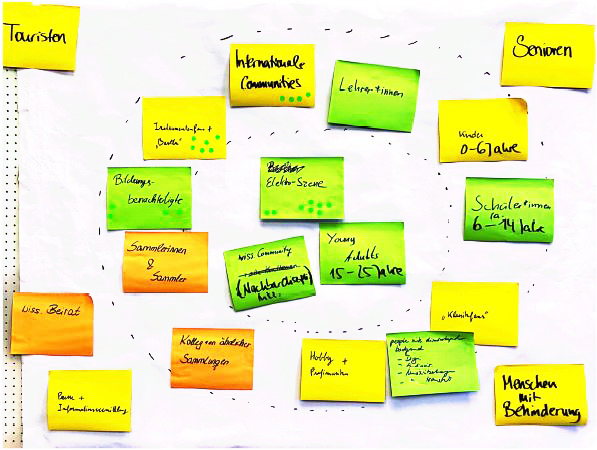 Touristen
Senioren
Internationale
Communities
Lehrer*innen
Instrumentenfans +
Kinder
0-6 Jahre
Bildungs-
benachteiligte
Elektro-Szene
Schüler*innen
ca.
6-14 Jahre
Sammlerinnen
&
Sammler
wiss. Community
(Nachbardisziplinen)
inkl.
Young
Adults
15-25 Jahre
wiss. Beirat
Kolleg*en ähnlicher
Sammlungen
Hobby +
Profimusiker
"Klassikfans"
people with
Background
Presse +
Informationsvermittlung
Menschen
mit
Behinderung